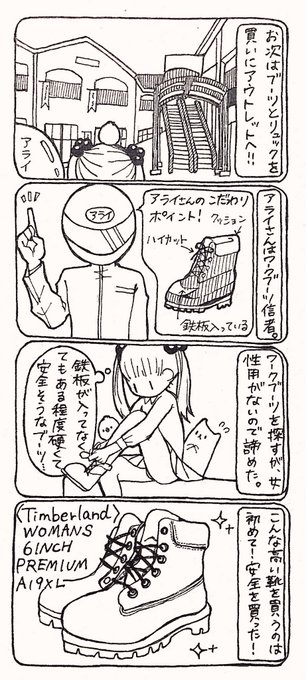 お次はブーツとリュックを
買いにアウトレットへ!!
アライ
アライさんはワークブーツ信者。
アライ
アライさんのこだわり
ポイント!
クッション
ハイカット
鉄板入っている
ワークブーツを探すが、女
性用がないので諦めた。
鉄板が入ってなく
てもある程度硬くて
安全そうなブーツ…
こんな高い靴を買うのは
初めて!安全を買った!
〈Timberland〉
WOMANS
6INCH
PREMIUM
A19XL